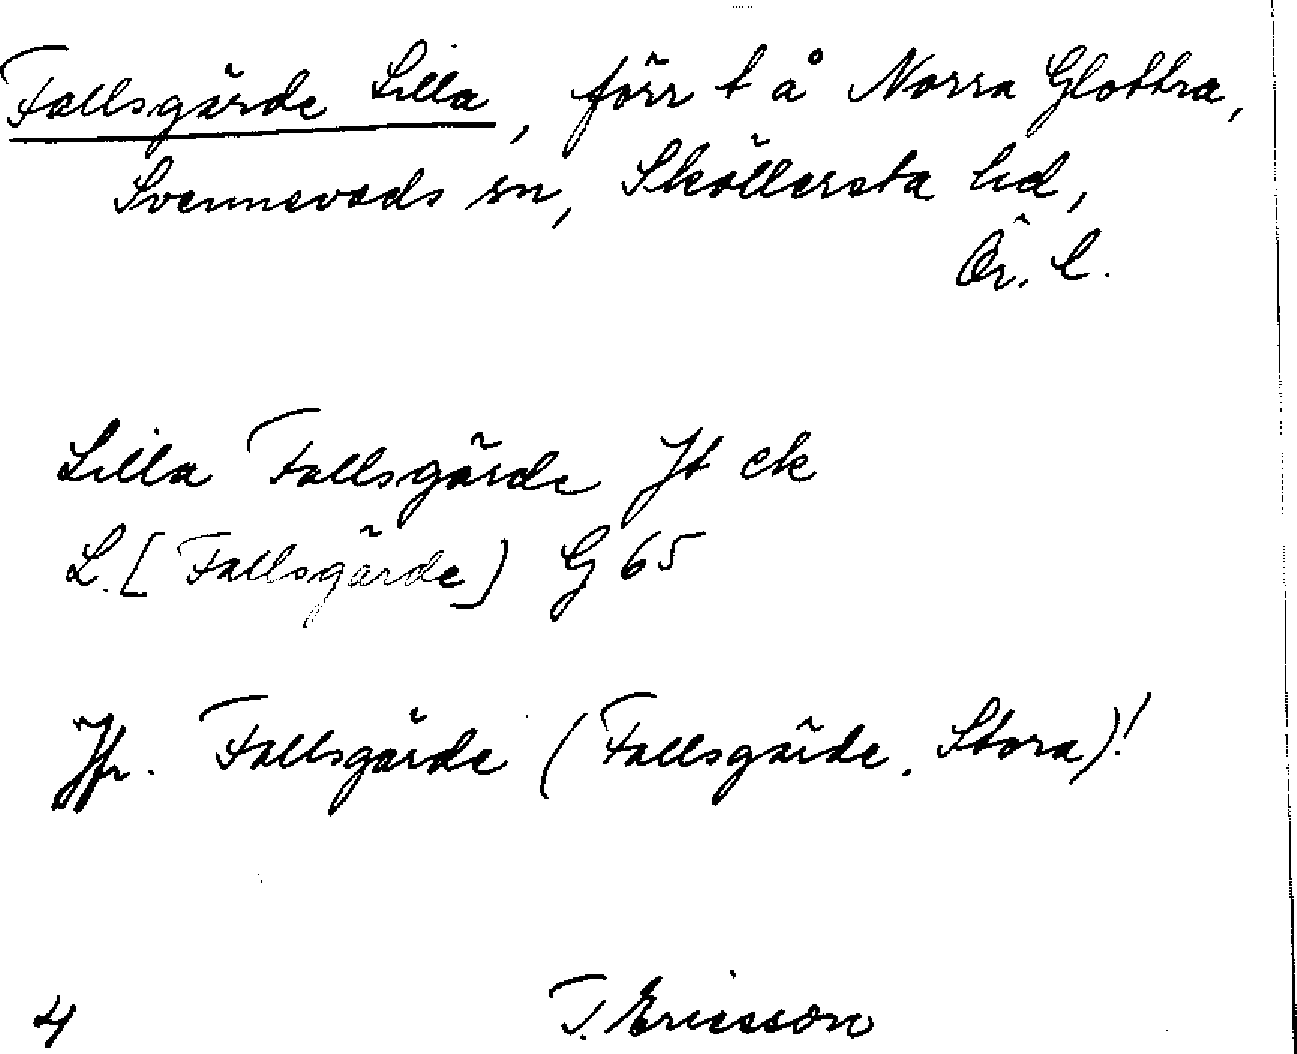 Fallsgärde Lilla, förr t å Norra Glottra,
Svennevads sn, Sköllersta hd,
Ör. l.
Lilla Fallsgärde Jt ek
L. [Fallsgärde] G 65
Jfr. Fallsgärde (Fallsgärde, Stora)!
4 T. Ericsson